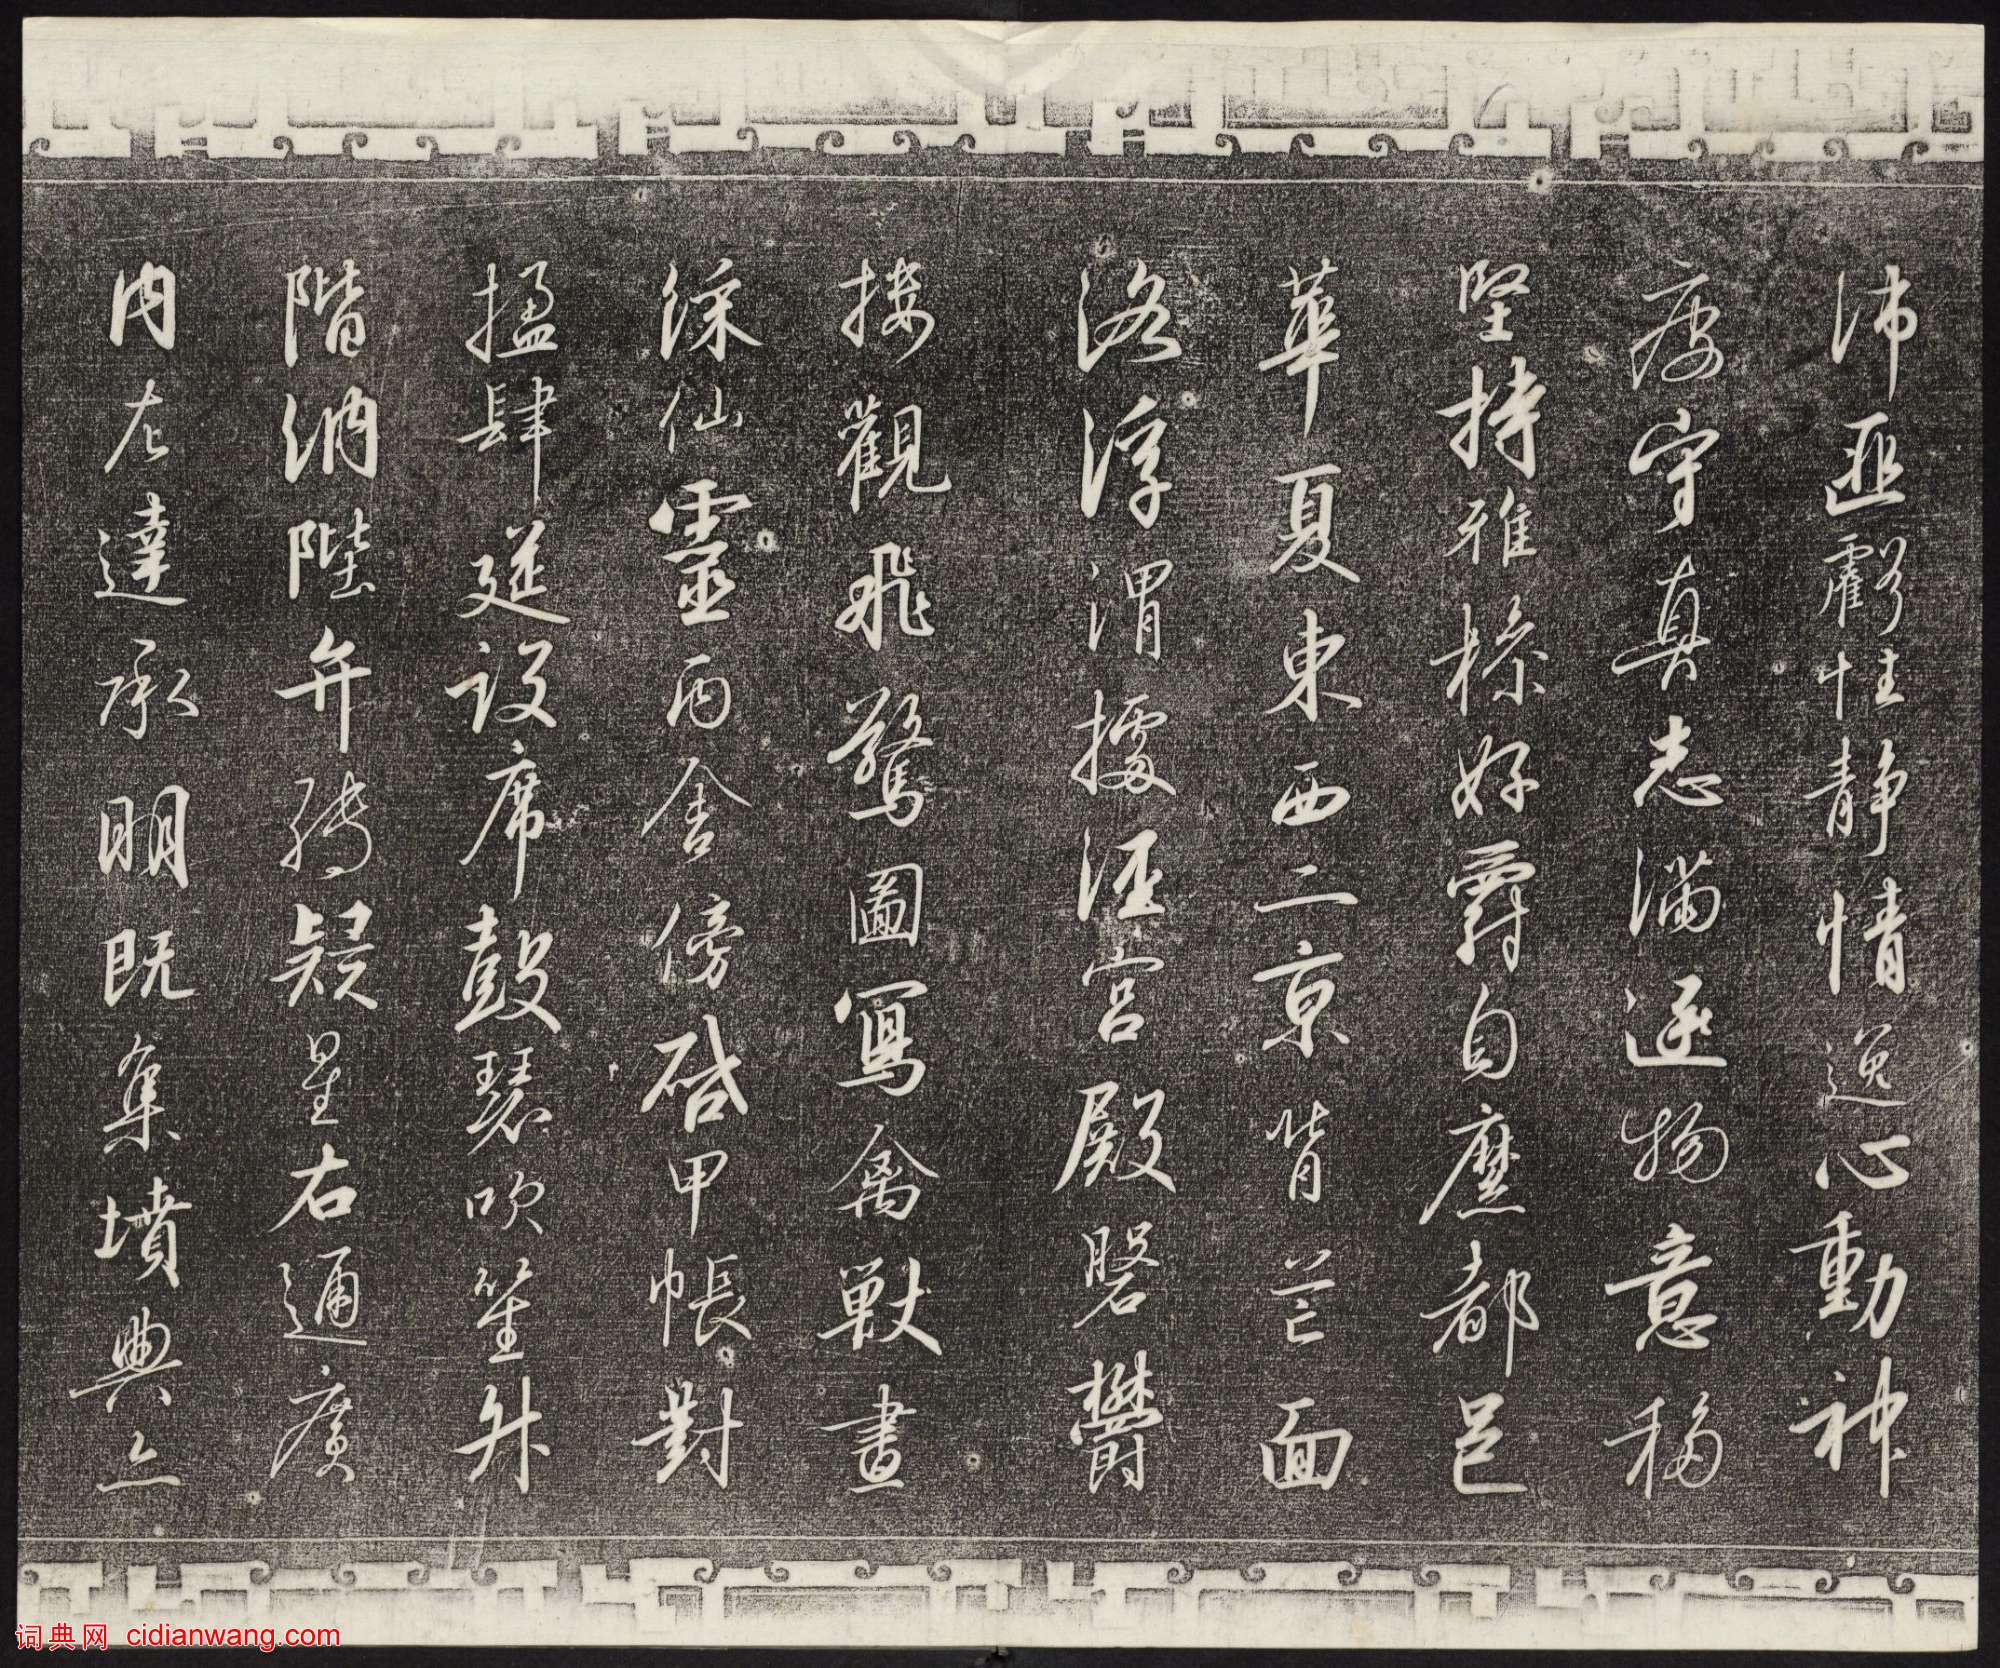 沛匪虧性靜情逸心動神
疲守真志滿逐物意移
堅持雅操好爵自縻都邑
華夏東西二京背芒面
洛浮渭據涇宮殿磐鬱
樓觀飛驚圖寫禽獸畫
綵仙靈丙舍傍啓甲帳對
楹肆筵設席鼓瑟吹笙升
階納陛弁轉疑星右通廣
內左達承明既集墳典亦
词典网 cidianwang.com